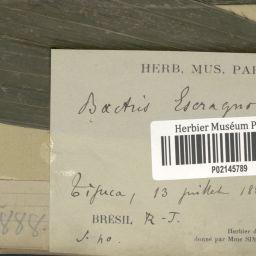 HERB. MUS. PAR
Bactris Escragno
Herbier Muséum P
P02145789
Tijuca, 13 juillet 18
BRÉSIL R-J.
888
Herbier d
donné par Mme SIM